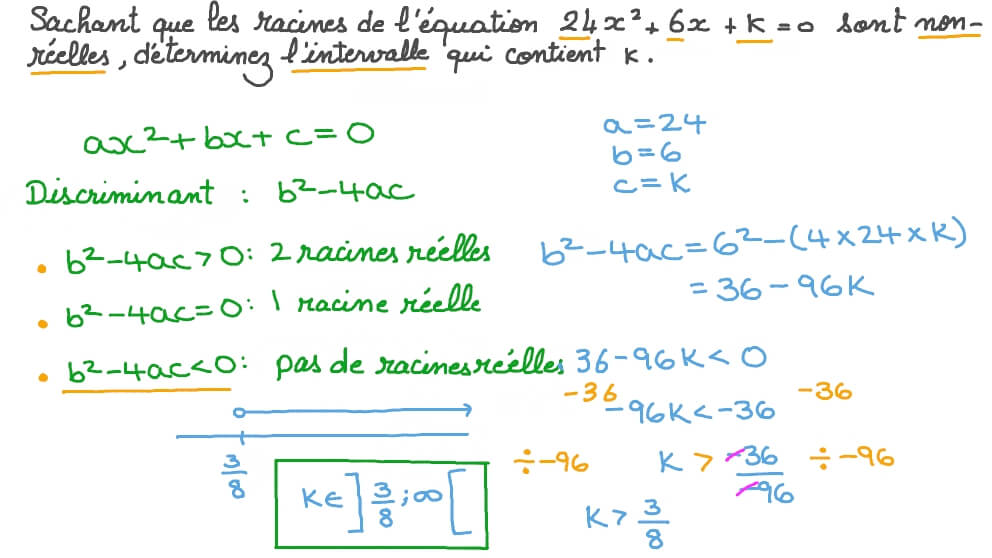 Sachant que les racines de l'équation 24x² + 6x + k = 0 sont non-
réelles, déterminez l'intervalle qui contient k.
ax² + bx + c = 0
a = 24
b = 6
c = k
Discriminant : b² - 4ac
• b² - 4ac > 0 : 2 racines réelles
• b² - 4ac = 0 : 1 racine réelle
• b² - 4ac < 0 : pas de racines réelles
b² - 4ac = 6² - (4 × 24 × k)
= 36 - 96k
36 - 96k < 0
-36 -96k < -36 -36
÷ -96 k > -36/-96 ÷ -96
k > 3/8
3/8
k ∈ ]3/8 ; ∞[